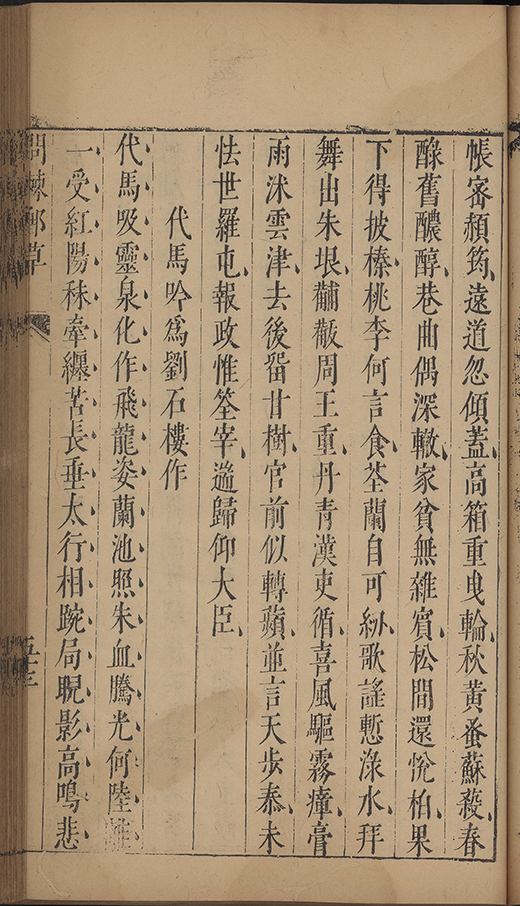 帳密頻筠遠道忽傾蓋高箱重曳輪秋黃蚤蘇殺春
醁舊醲醇巷曲偶深轍家貧無雜賓松間還悅柏果
下得披榛桃李何言食荃蘭自可紉歌謠慙淥水拜
舞出朱垠黼黻周王重丹青漢吏循喜風驅霧瘴膏
雨沐雲津去後留甘樹官前似轉蘋並言天步泰未
怯世羅屯報政惟筌宰遄歸仰大臣
代馬吟為劉石樓作
代馬吸靈泉化作飛龍姿蘭池照朱血騰光何陸離
一受紅陽秣牽纏苦長垂太行相踠局睨影高鳴悲
問棘郵草
五十三